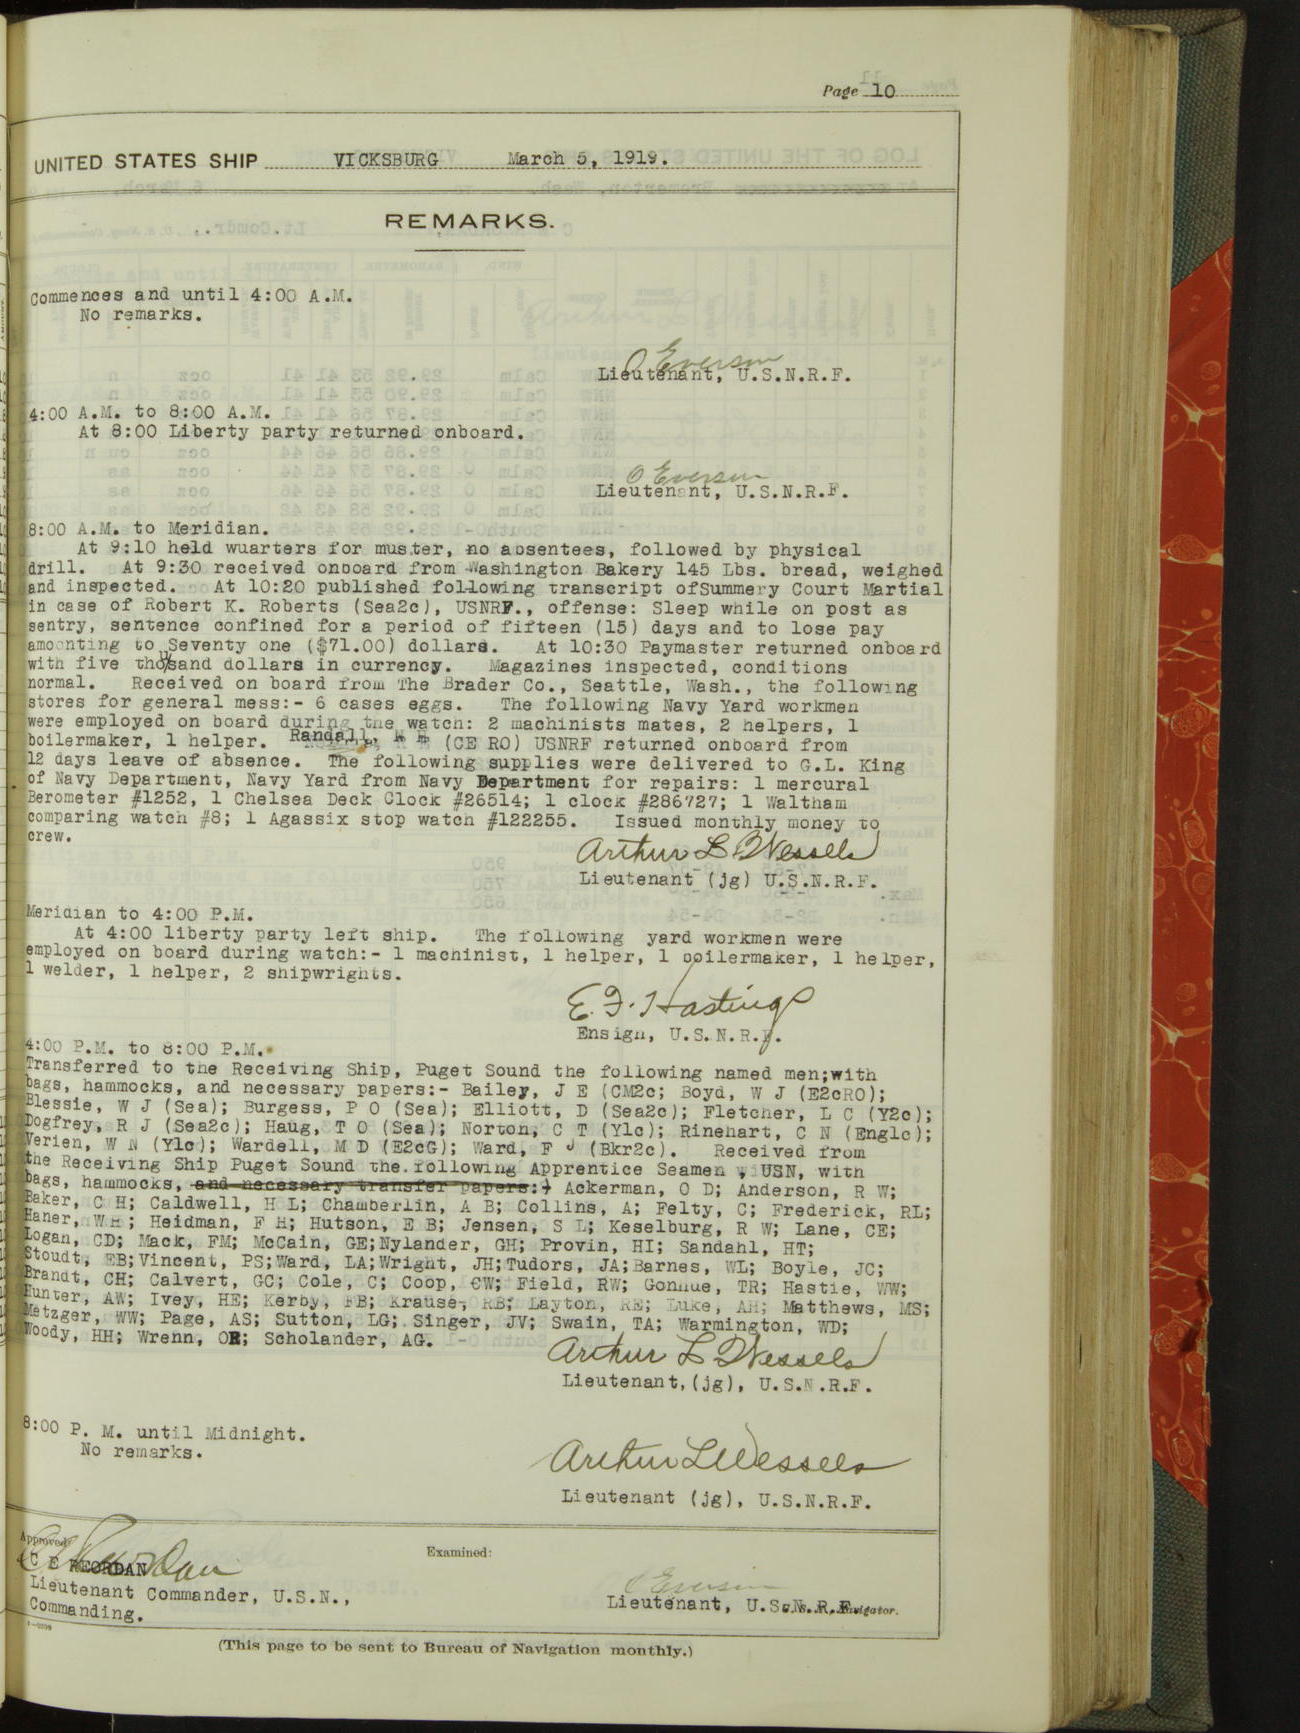 Page 10
UNITED STATES SHIP VICKSBURG March 5, 1919.
REMARKS.
Commences and until 4:00 A.M.
No remarks.
O Everson
Lieutenant, U.S.N.R.F.
4:00 A.M. to 8:00 A.M.
At 8:00 Liberty party returned onboard.
O Everson
Lieutenant, U.S.N.R.F.
8:00 A.M. to Meridian.
At 9:10 held wuarters for muster, no absentees, followed by physical
drill. At 9:30 received onboard from Washington Bakery 145 Lbs. bread, weighed
and inspected. At 10:20 published following transcript ofSummery Court Martial
in case of Robert K. Roberts (Sea2c), USNRF., offense: Sleep while on post as
sentry, sentence confined for a period of fifteen (15) days and to lose pay
amounting to Seventy one ($71.00) dollars. At 10:30 Paymaster returned onboard
with five thousand dollars in currency. Magazines inspected, conditions
normal. Received on board from The Brader Co., Seattle, Wash., the following
stores for general mess:- 6 cases eggs. The following Navy Yard workmen
were employed on board during the watch: 2 machinists mates, 2 helpers, 1
boilermaker, 1 helper. Randall, (CE RO) USNRF returned onboard from
12 days leave of absence. The following supplies were delivered to G.L. King
of Navy Department, Navy Yard from Navy Department for repairs: 1 mercural
Berometer #1252, 1 Chelsea Deck Clock #26514; 1 clock #286727; 1 Waltham
comparing watch #8; 1 Agassix stop watch #122255. Issued monthly money to
crew.
Arthur L Wessels
Lieutenant (jg) U.S.N.R.F.
Meridian to 4:00 P.M.
At 4:00 liberty party left ship. The following yard workmen were
employed on board during watch:- 1 machinist, 1 helper, 1 boilermaker, 1 helper,
1 welder, 1 helper, 2 shipwrights.
E. F. Hastings
Ensign, U.S.N.R.F.
4:00 P.M. to 8:00 P.M.
Transferred to the Receiving Ship, Puget Sound the following named men;with
bags, hammocks, and necessary papers:- Bailey, J E (CM2c; Boyd, W J (E2cRO);
Blessie, W J (Sea); Burgess, P O (Sea); Elliott, D (Sea2c); Fletcher, L C (Y2c);
Dogfrey, R J (Sea2c); Haug, T O (Sea); Norton, C T (Y1c); Rinehart, C N (Eng1c);
Verien, W N (Y1c); Wardell, M D (E2cG); Ward, F J (Bkr2c). Received from
the Receiving Ship Puget Sound the following Apprentice Seamen , USN, with
bags, hammocks, and necessary transfer papers: Ackerman, O D; Anderson, R W;
Baker, C H; Caldwell, H L; Chamberlin, A B; Collins, A; Felty, C; Frederick, RL;
Haner, W H ; Heidman, F H; Hutson, E B; Jensen, S L; Keselburg, R W; Lane, CE;
Logan, CD; Mack, FM; McCain, GE;Nylander, GH; Provin, HI; Sandahl, HT;
Stoudt, EB;Vincent, PS;Ward, LA;Wright, JH;Tudors, JA;Barnes, WL; Boyle, JC;
Brandt, CH; Calvert, GC; Cole, C; Coop, CW; Field, RW; Gonnue, TR; Hastie, WW;
Hunter, AW; Ivey, HE; Kerby, FB; Krause, RB; Layton, RE; Luke, AH; Matthews, MS;
Metzger, WW; Page, AS; Sutton, LG; Singer, JV; Swain, TA; Warmington, WD;
Woody, HH; Wrenn, OR; Scholander, AG.
Arthur L Wessels
Lieutenant,(jg), U.S.N.R.F.
8:00 P. M. until Midnight.
No remarks.
Arthur L Wessels
Lieutenant (jg), U.S.N.R.F.
Approved:
C E REORDAN
Lieutenant Commander, U.S.N.,
Commanding.
Examined:
O Everson
Lieutenant, U.S.N.R.F. Navigator.
(This page to be sent to Bureau of Navigation monthly.)